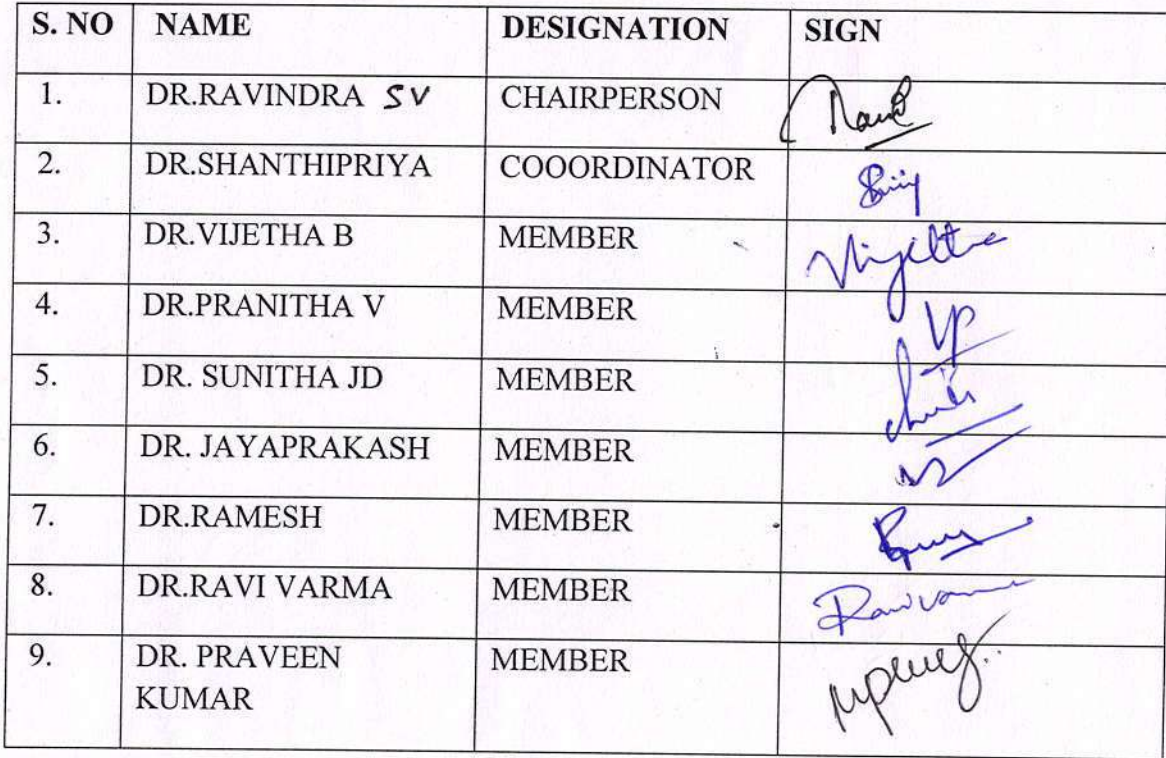 S. NO NAME DESIGNATION SIGN
1. DR.RAVINDRA SV CHAIRPERSON
2. DR.SHANTHIPRIYA COOORDINATOR
3. DR.VIJETHA B MEMBER Vijetha
4. DR.PRANITHA V MEMBER VP
5. DR. SUNITHA JD MEMBER
6. DR. JAYAPRAKASH MEMBER
7. DR.RAMESH MEMBER
8. DR.RAVI VARMA MEMBER Ravivarma
9. DR. PRAVEEN MEMBER
KUMAR